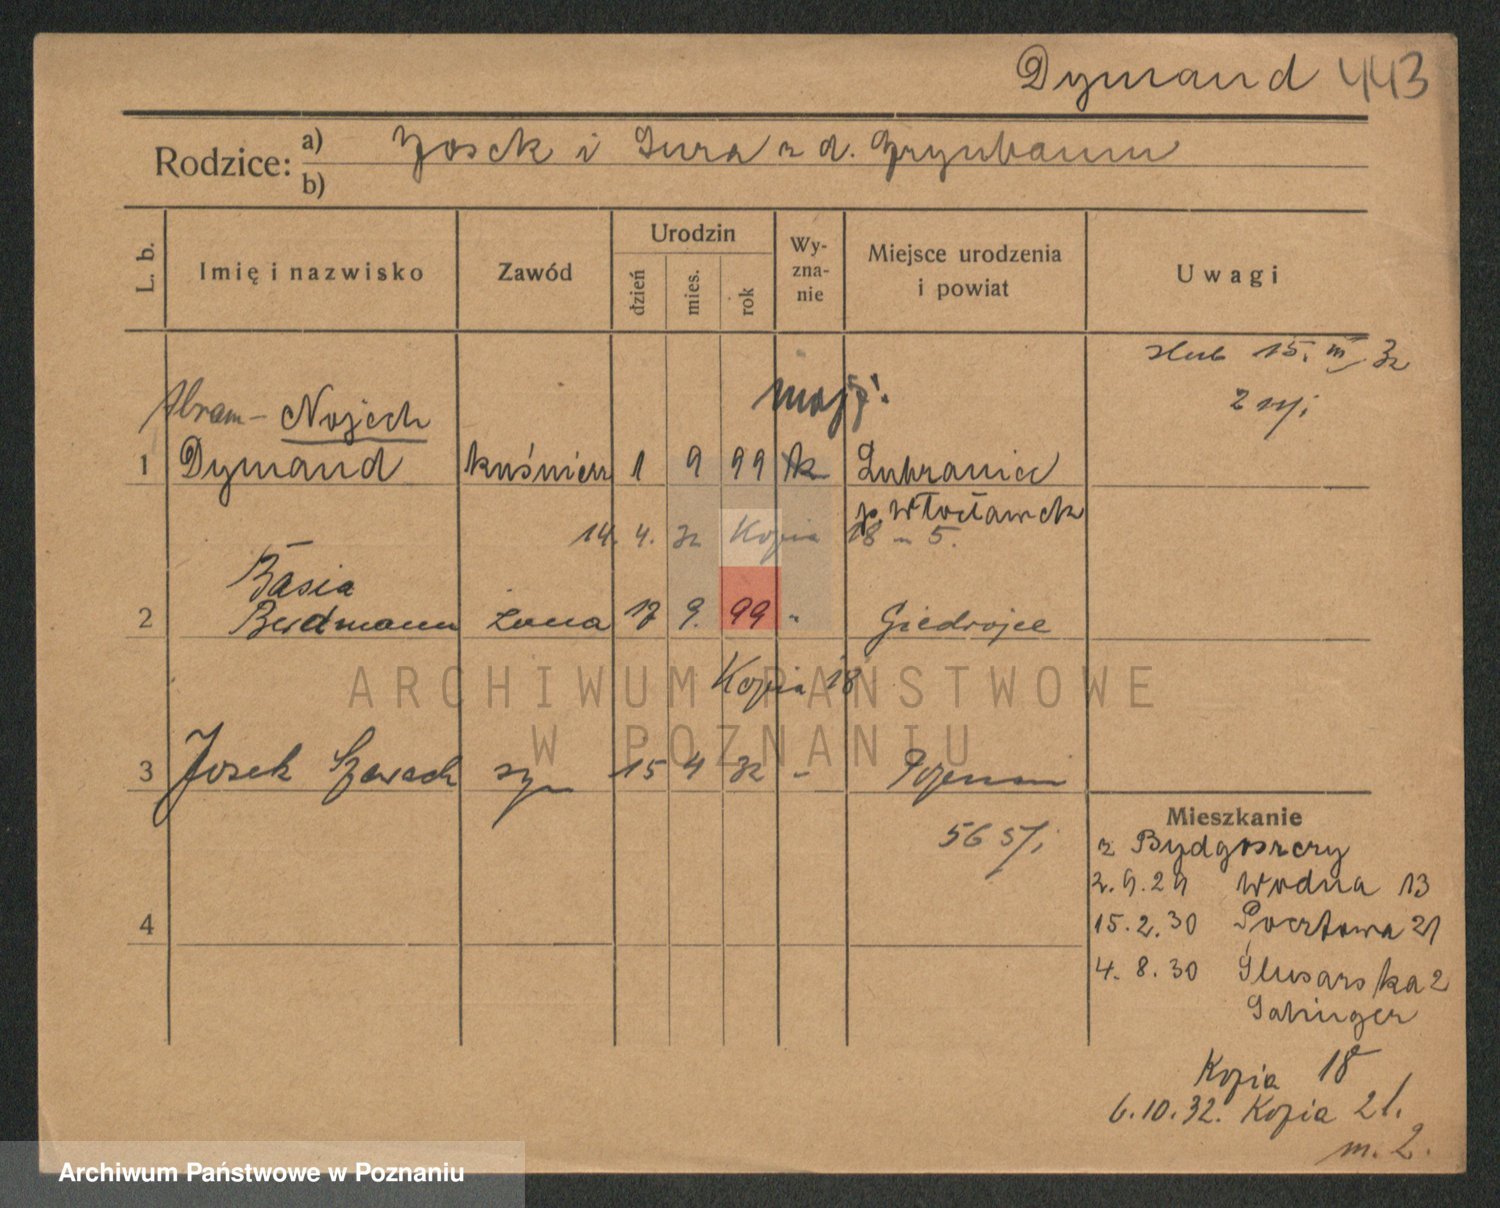 Dymand 443
Rodzice: a) Josek i Sura z d. Grynbaum
b)
L. b. Imię i nazwisko Zawód Urodzin dzień mies. rok Wy-zna-nie Miejsce urodzenia i powiat Uwagi
ślub 15. III 32
Abram- Nojech mojż.
1 Dymand kuśnierz 1 9 99 Lubraniec
p. Włocławek
14. 4. 32 Kopia 18 - 5.
Basia
2 Berdmann żona 17 9. 99 " Giedrojce
Kopia 18
ARCHIWUM PAŃSTWOWE
W POZNANIU
3 Josek Szewach syn 15 4 32 - Poznań
Mieszkanie
z Bydgoszczy
2.9.29 Wodna 13
15.2.30 Pocztowa 21
4
4.8.30 Ślusarska 2
Kopia 18
6.10.32. Kopia 21.
m. 2.
Archiwum Państwowe w Poznaniu